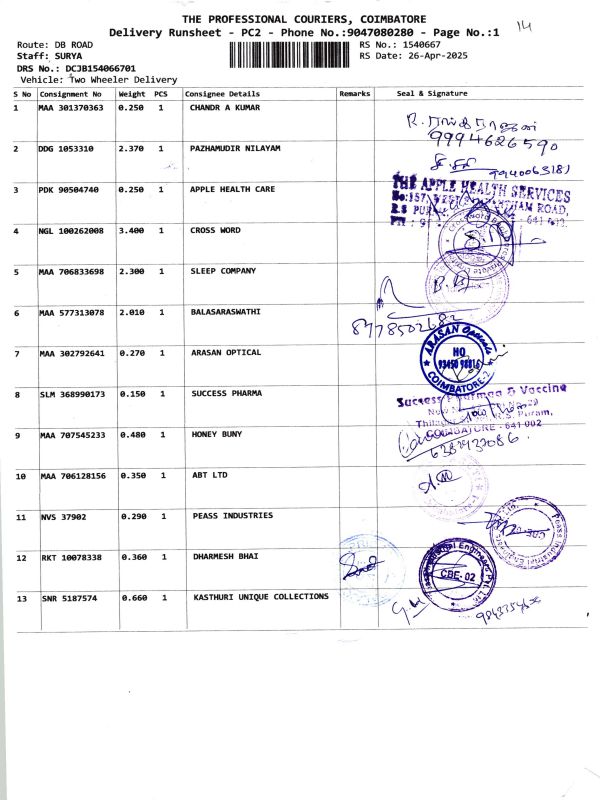 THE PROFESSIONAL COURIERS, COIMBATORE
Delivery Runsheet - PC2 - Phone No.:9047080280 - Page No.:1
14
Route: DB ROAD
RS No.: 1540667
Staff: SURYA
RS Date: 26-Apr-2025
DRS No.: DCJB154066701
Vehicle: Two Wheeler Delivery
S No Consignment No Weight PCS Consignee Details Remarks Seal & Signature
1 MAA 301370363 0.250 1 CHANDR A KUMAR
9994626590
2 DDG 1053310 2.370 1 PAZHAMUDIR NILAYAM
9940063181
3 PDK 90504740 0.250 1 APPLE HEALTH CARE
THE APPLE HEALTH SERVICES
ROAD,
4 NGL 100262008 3.400 1 CROSS WORD
5 MAA 706833698 2.300 1 SLEEP COMPANY
6 MAA 577313078 2.010 1 BALASARASWATHI
8778502682
7 MAA 302792641 0.270 1 ARASAN OPTICAL
ARASAN Opticals
HO
COIMBATORE-2
8 SLM 368990173 0.150 1 SUCCESS PHARMA
Success Pharmaa & Vaccine
R.S. Puram,
COIMBATORE - 641 002
9 MAA 707545233 0.480 1 HONEY BUNY
6382933086.
10 MAA 706128156 0.350 1 ABT LTD
11 NVS 37902 0.290 1 PEASS INDUSTRIES
Peass Industrial Engineers
CBE-02
12 RKT 10078338 0.360 1 DHARMESH BHAI
Industrial Engineers Pvt. Ltd
CBE-02
13 SNR 5187574 0.660 1 KASTHURI UNIQUE COLLECTIONS